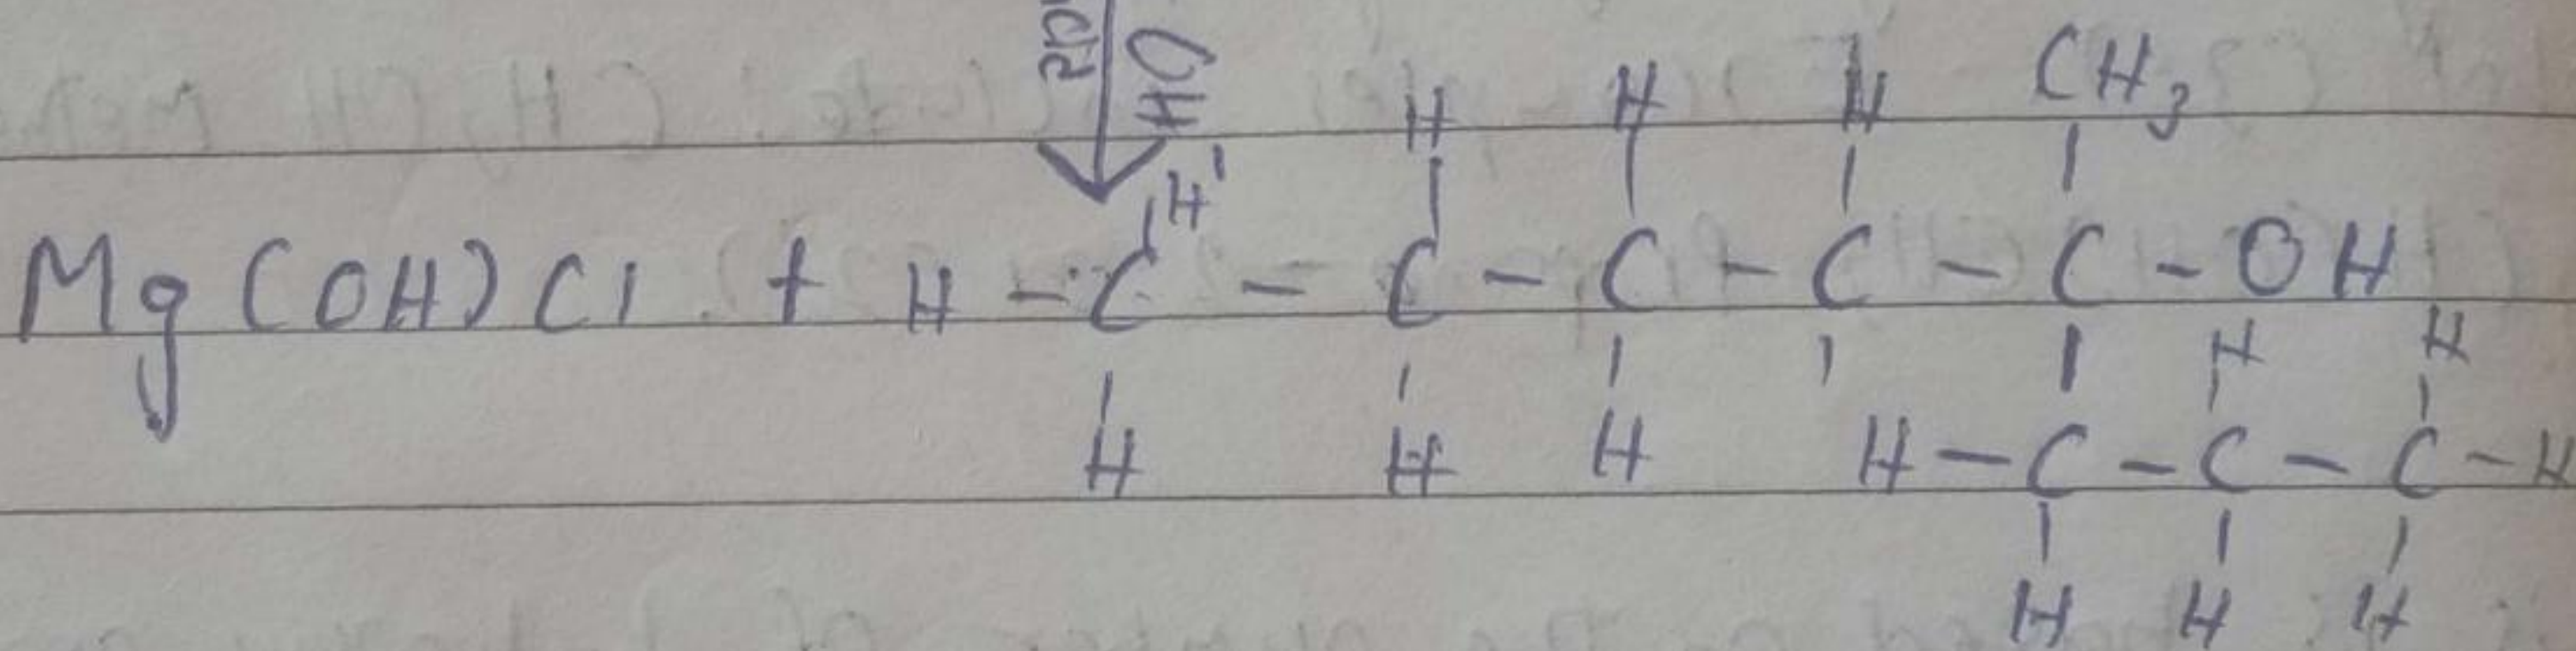 HO
H H H CH3
H
Mg(OH)Cl + H - C - C - C - C - C - OH
H H
H H H H - C - C - C - H
H H H